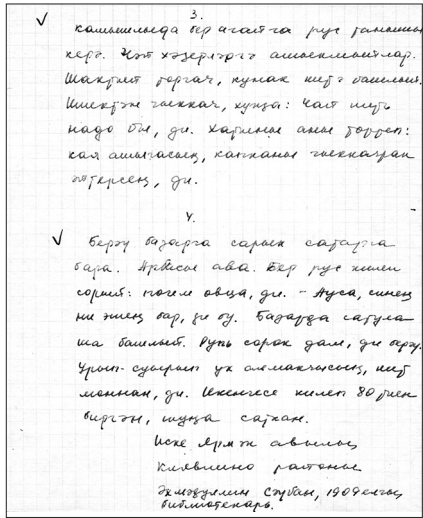 3.
камышлыда бер агайга рус танышы
керә. Чәй хәзерләргә ашыкмыйлар.
Шактый торгач, кунак китә башлый.
Ишектән чыккач, хуҗа: Чай пить
надо бы, ди. Хатыны аны
кая ашыгасың, капканы чыккачрак
әйтерсең, ди.
4.
Берәү базарга сарык сатарга
бара. Арбасы ава. Бер рус килеп
сорый: почем овца, ди. - Ауса, синең
ни эшең бар, ди бу. Базарда сатула
ша башлый. Рупь сорок дам, ди берәү.
Урып-сугырып ук алмакчысың, кит
моннан, ди. Икенчесе килеп 80 тиен
биргән, шуңа саткан.
Иске Ярмәк авылы,
Клявлино районы
Әхмәдуллин 1909 елгы,
библиотекарь.